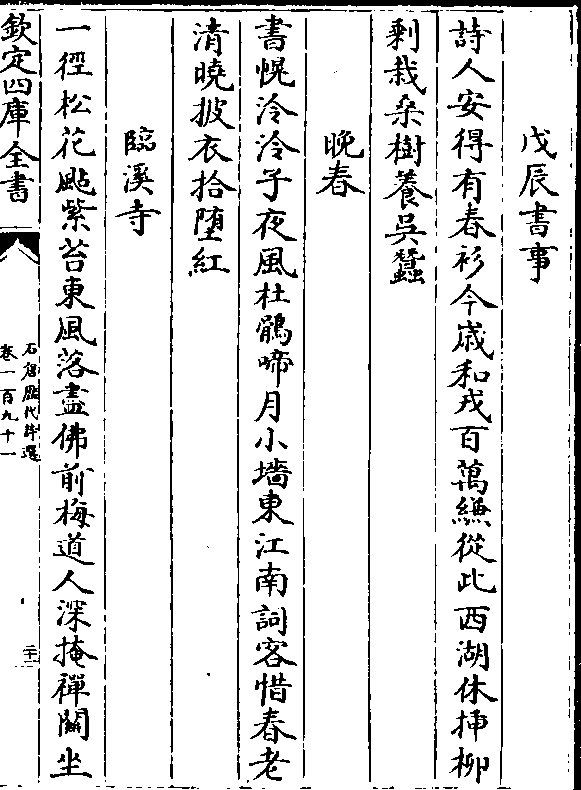 戊辰書事
詩人安得有春衫今歲和戎百萬縑從此西湖休揷柳
剩栽桑樹養吳蠶
晚春
書幌泠泠子夜風杜鵑啼月小墻東江南詞客惜春老
清曉披衣拾墮紅
臨溪寺
一徑松花颭紫苔東風落盡佛前梅道人深掩禪關坐
欽定四庫全書
石倉歷代詩選
卷一百九十一